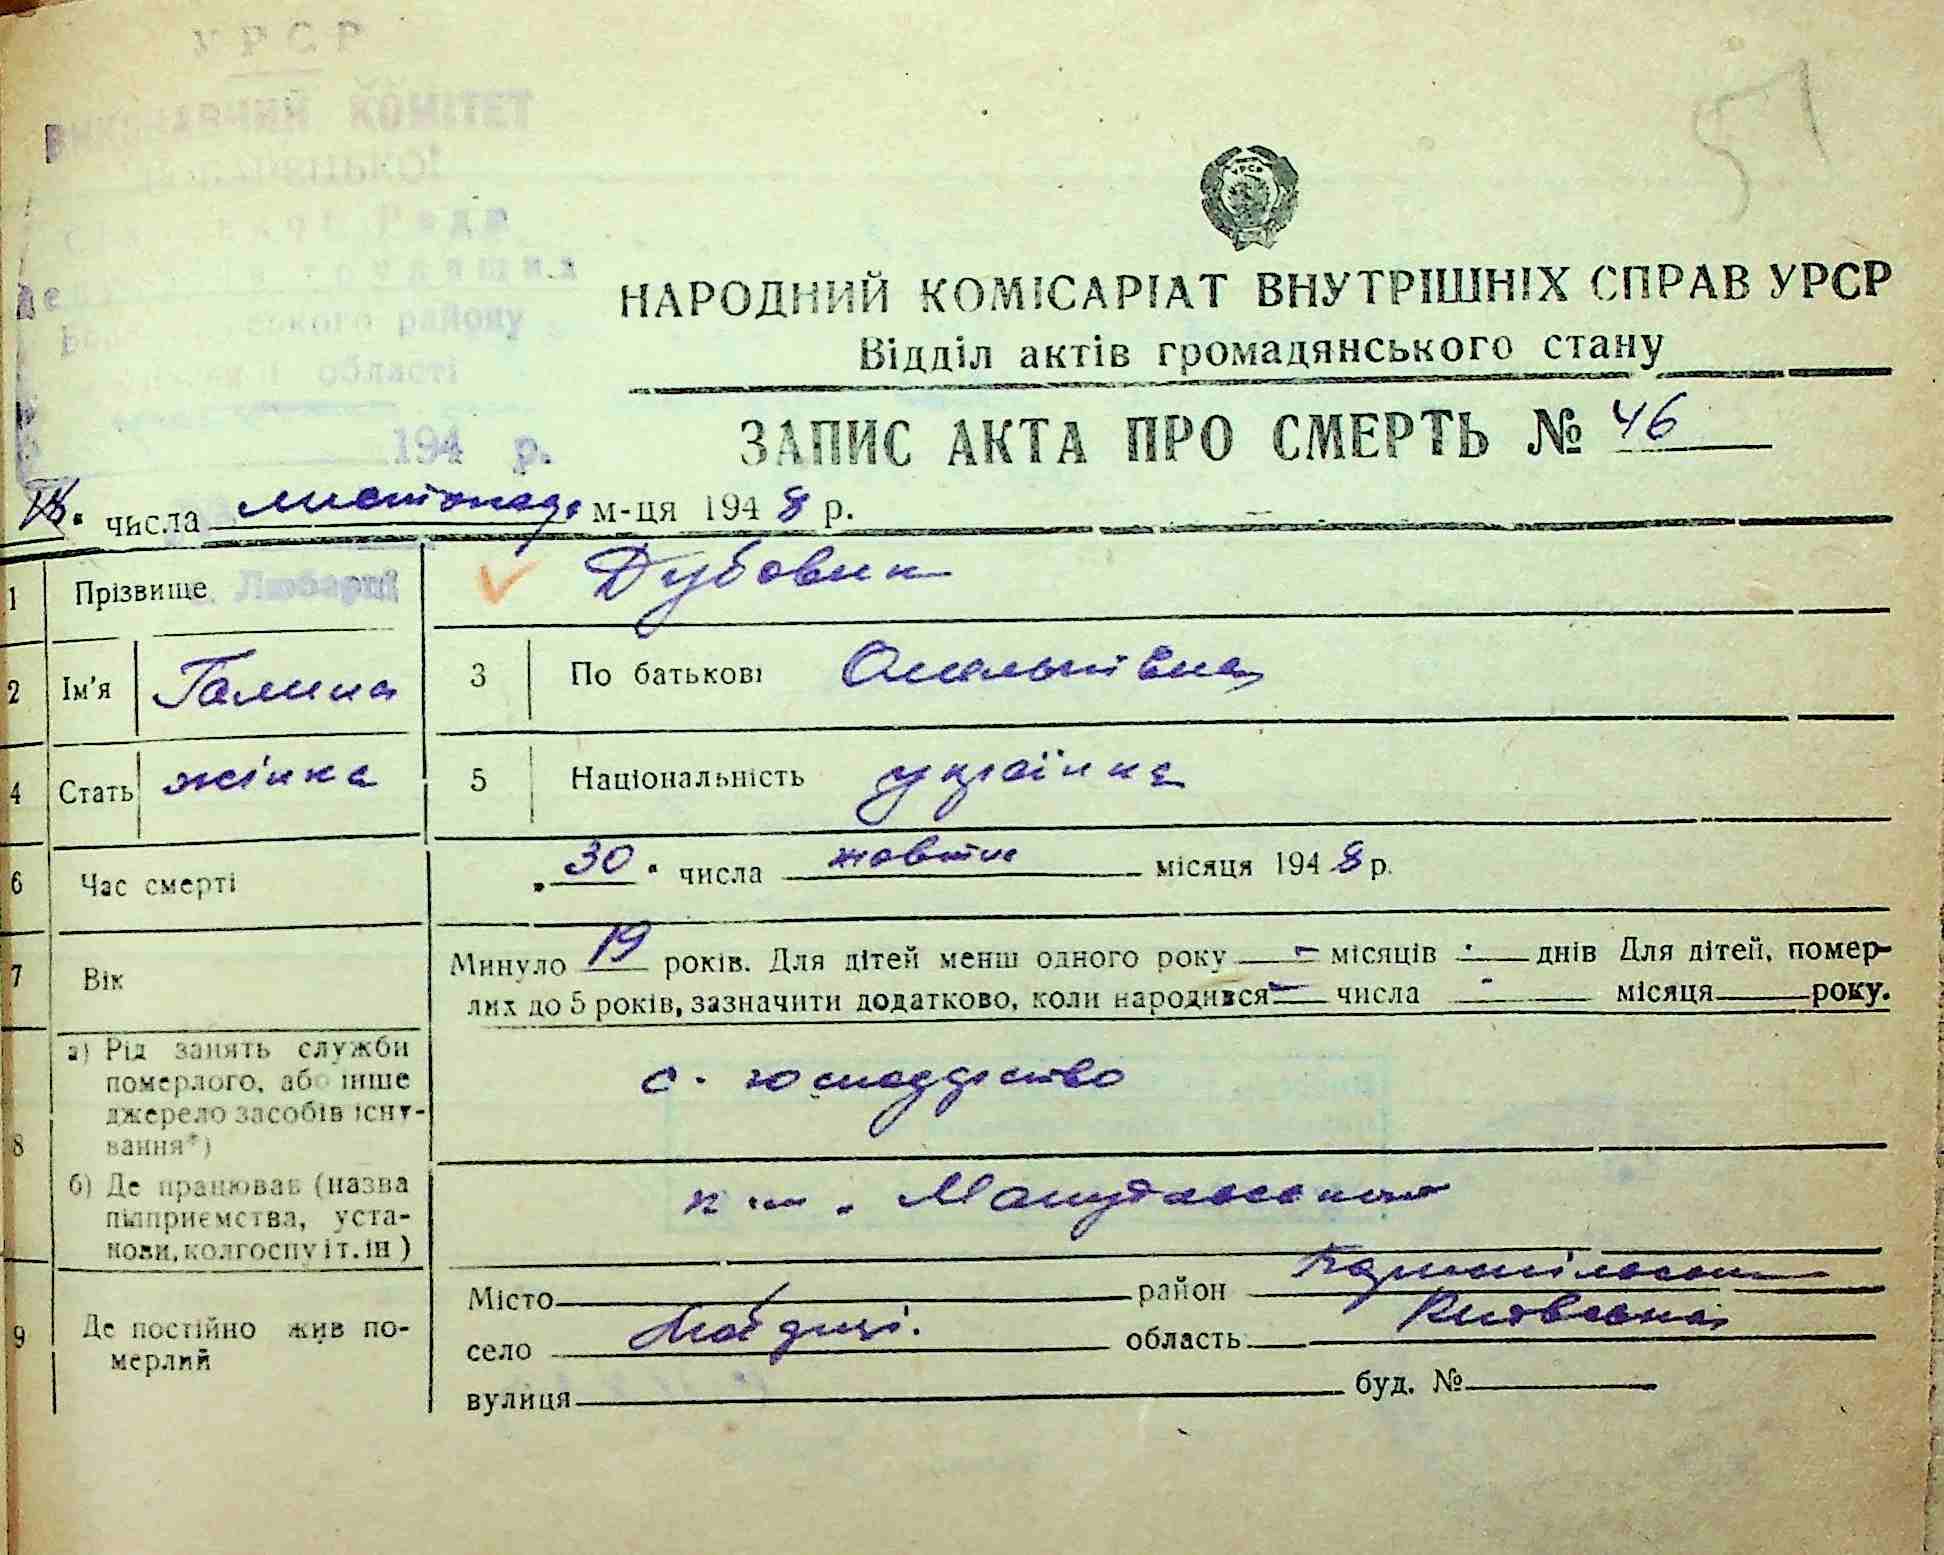 УРСР
ВИКОНАВЧИЙ КОМІТЕТ
району
області
194 р.
51
УРСР
НАРОДНИЙ КОМІСАРІАТ ВНУТРІШНІХ СПРАВ УРСР
Відділ актів громадянського стану
ЗАПИС АКТА ПРО СМЕРТЬ № 46
числа листопада м-ця 1948 р.
1 Прізвище Дубовик
с. Любарці
2 Ім'я Галина 3 По батькові Омельківна
4 Стать жінка 5 Національність українка
6 Час смерті „30“ числа жовтня місяця 1948 р.
7 Вік Минуло 19 років. Для дітей менш одного року – місяців - днів Для дітей, помер-
лих до 5 років, зазначити додатково, коли народився – числа - місяця року.
8 а) Рід занять служби
померлого, або інше
джерело засобів існу-
вання*)
с. господарство
б) Де працював (назва
підприємства, уста-
нови, колгоспу і т. ін)
к-п.
9 Де постійно жив по-
мерлий
Місто район Бориспільський
село область Київська
вулиця буд. №